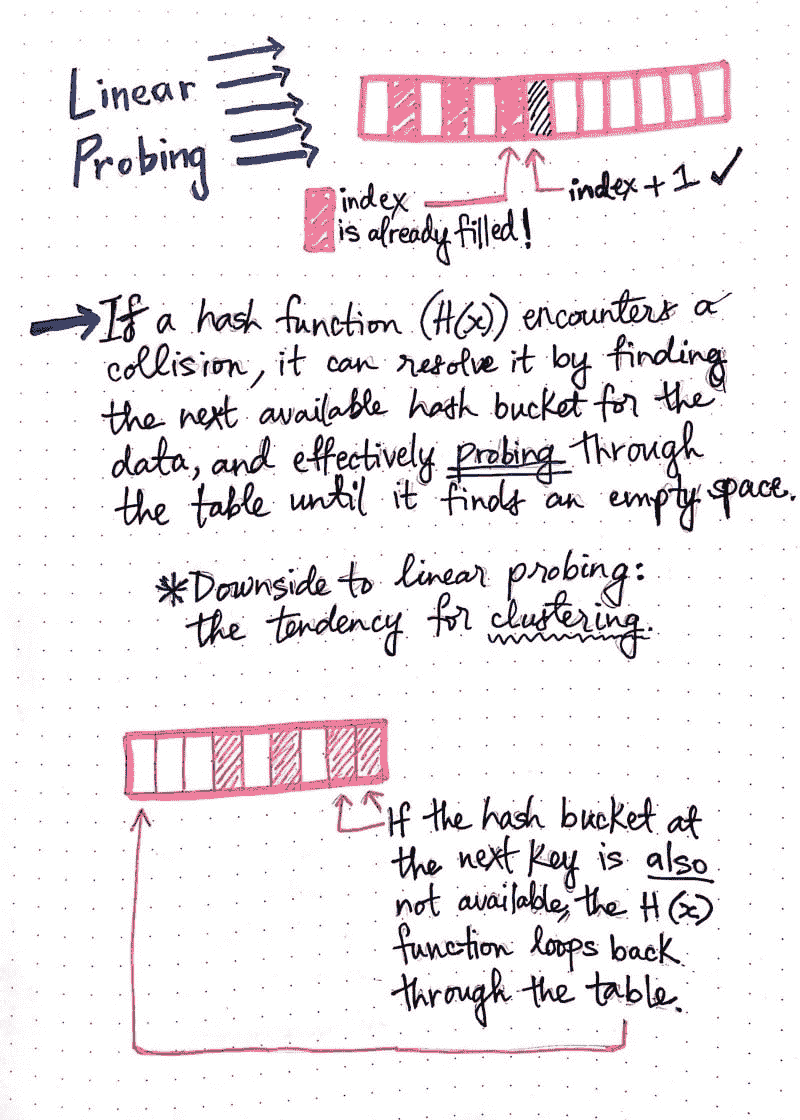 Linear
Probing
index
is already filled!
index + 1 ✓
If a hash function (H(x)) encounters a
collision, it can resolve it by finding
the next available hash bucket for the
data, and effectively probing through
the table until it finds an empty space.
*Downside to linear probing:
the tendency for clustering.
If the hash bucket at
the next key is also
not available, the H(x)
function loops back
through the table.